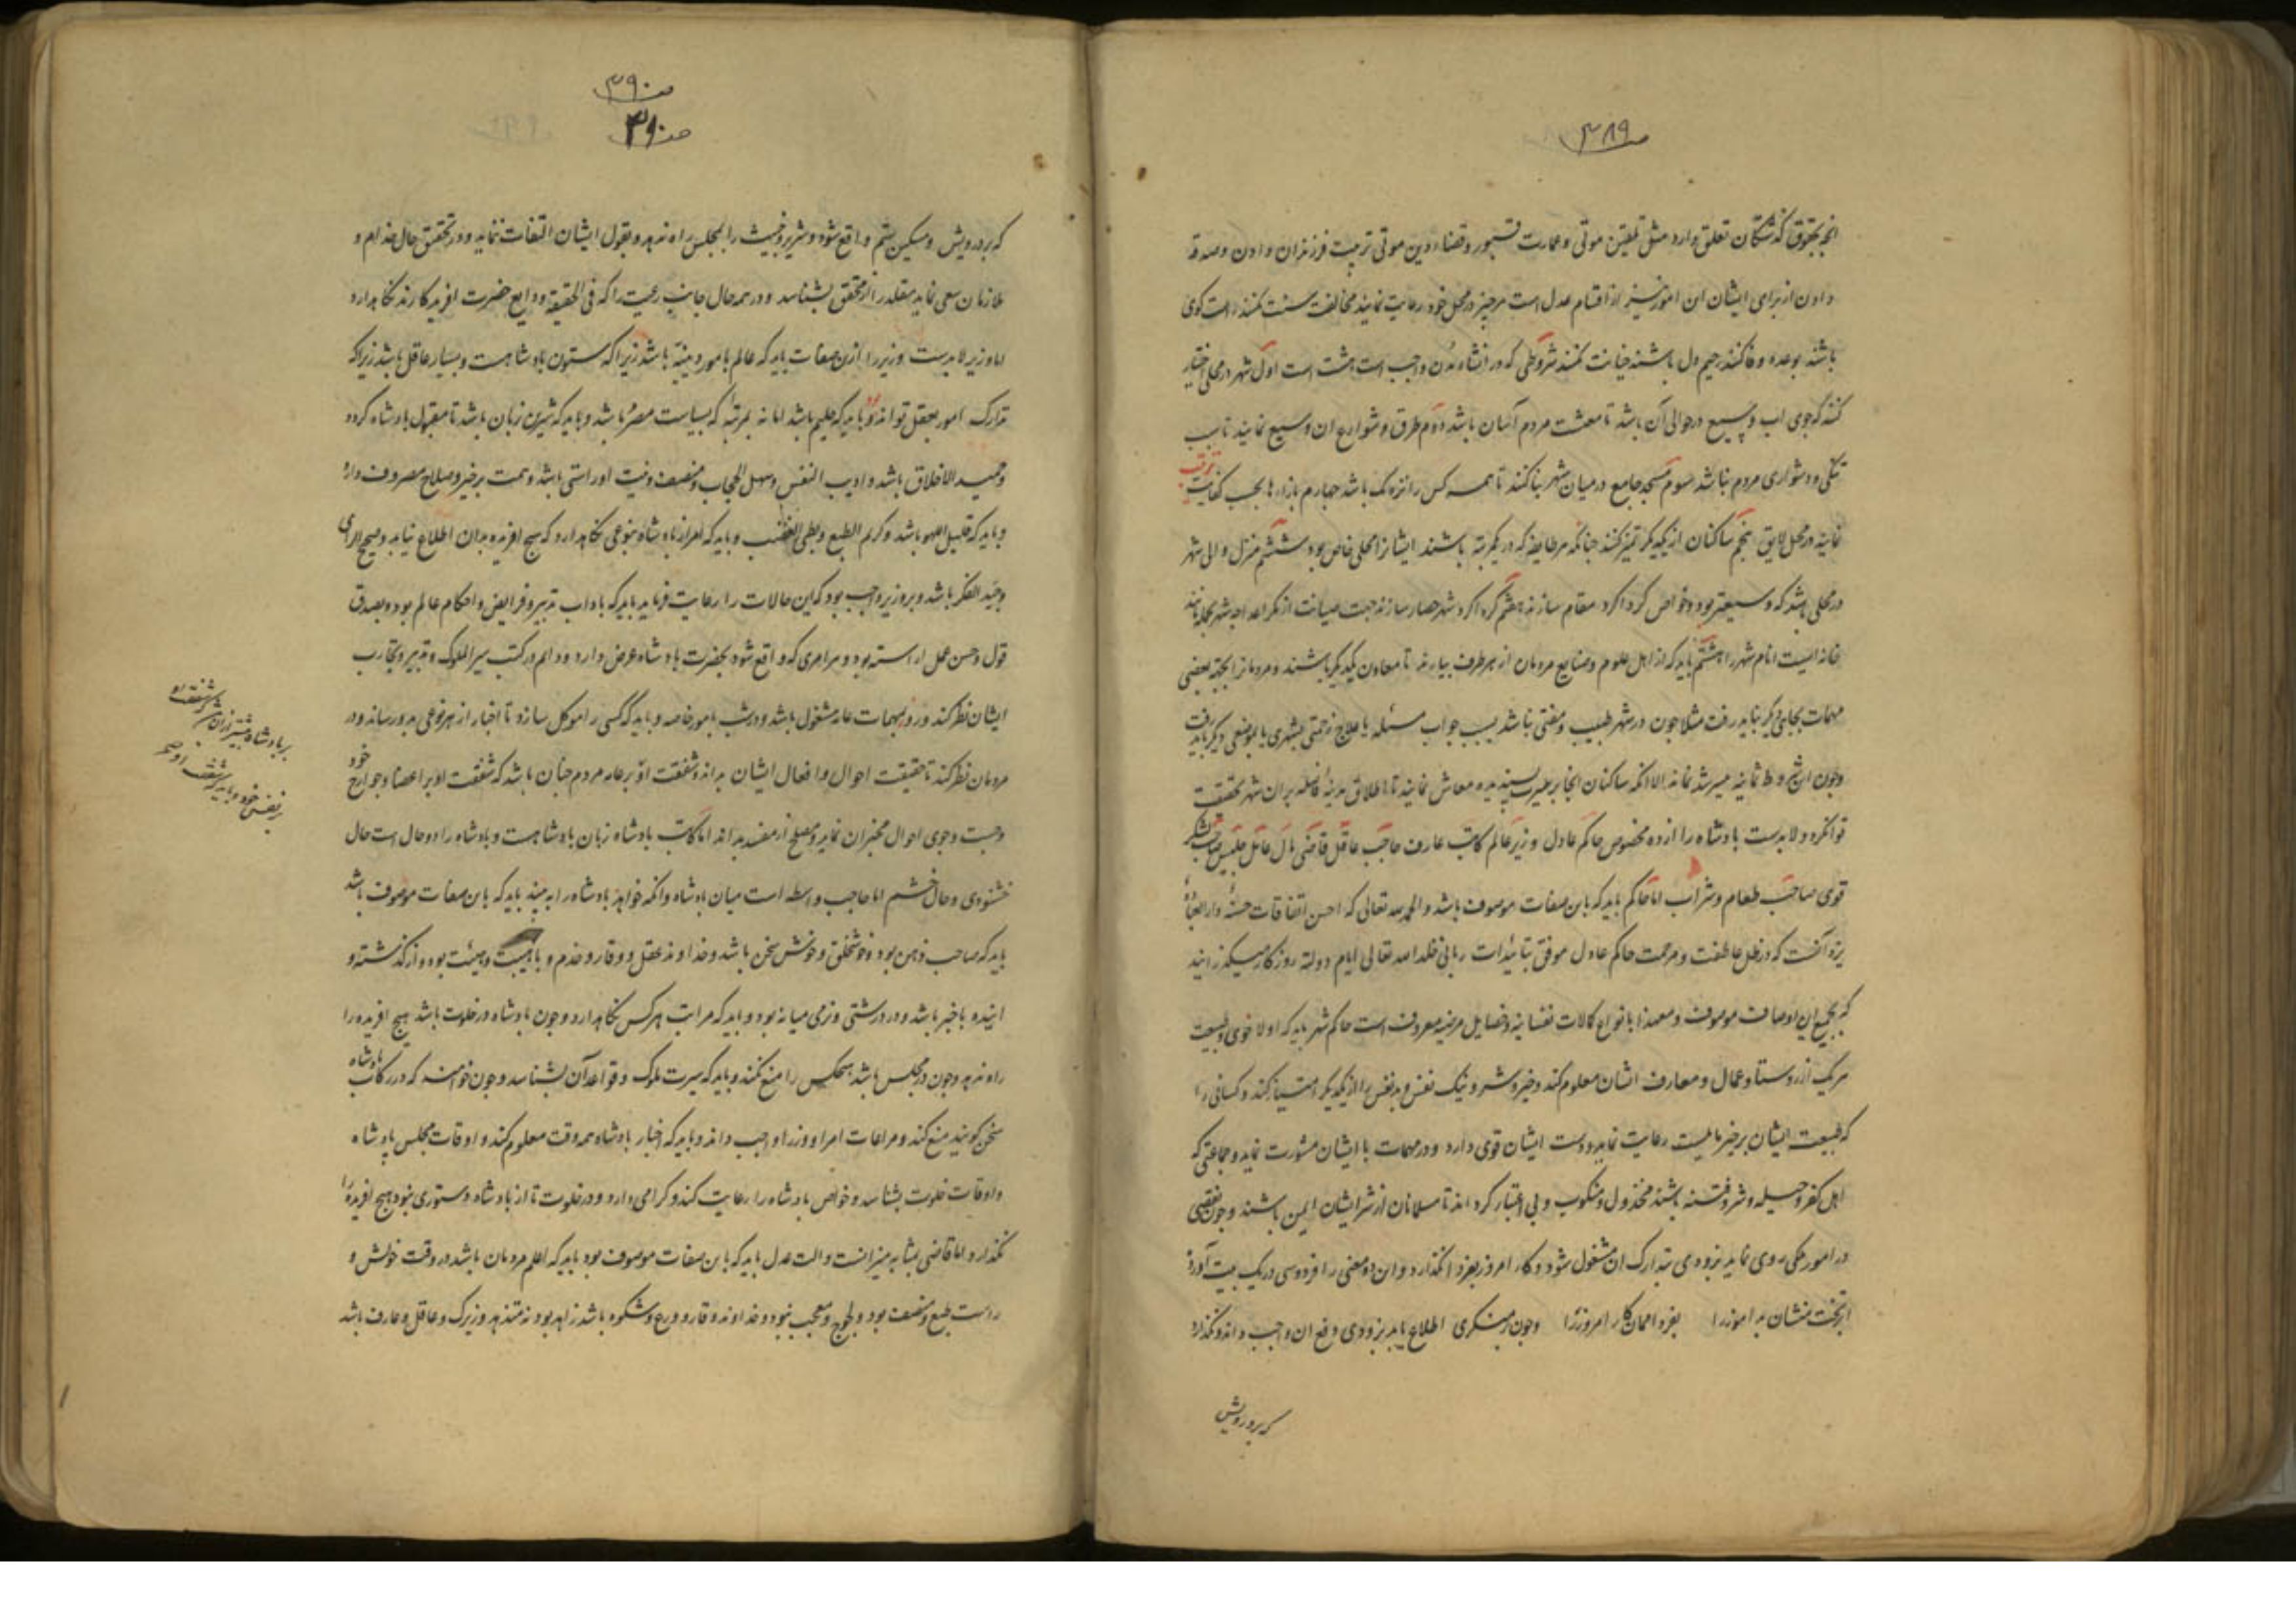 ص ۳۸۹
انچه بحقوق گذشتگان تعلق دارد مثل تلقین موتی و عمارت قبور و قضاء دین موتی تربیت فرزندان دادن و صدقه
دادن از برای ایشان این امور نیز از اقسام عدل است هر چیز در محل خود رعایت نمایند مخالفت سنت نکنند راست کوی
باشند بوعده وفا کنند رحیم دل باشند خیانت نکنند شروطی که در انشاء مدن واجب است هشت است اول شهر در محلی اختیار
کنند که جوی اب وسیع در حوالی آن باشد تا معیشت مردم آسان باشد دوم طرق و شوارع ان وسیع نمایند تا سبب
تنکی و دشواری مردم نباشد سوم مسجد جامع در میان شهر بنا کنند تا همه کس را نزدیک باشد چهارم بازارها بحسب کفایت
نمایند در محل لایق پنجم ساکنان از یکدیکر تمیز کنند چنانکه هر طایفه که در یکمرتبه باشند ایشانرا محلی خاص بود ششم منزل والی شهر
در محلی باشد که وسیعتر بود و خواص کرداکرد مقام سازند هفتم کرداکرد شهر حصار سازند جهت صیانت از مکر اعدا چه شهر بجمله مانند
خانه ایست انام شهر را هشتم باید که از اهل علوم و صنایع مردمان از هر طرف بیارند تا معاون یکدیکر باشند و مردمانرا بجهة بعضی
مهمات بجایی دیکر نباید رفت مثلا چون در شهر طبیب و مفتی نباشد بسبب جواب مسئله یا علاج زحمتی بشهری یا بموضعی دیکر باید رفت
و چون این شروط ثمانیه میسر شد نماند الا انکه ساکنان انجا بر سیر پسندیده معاش نمایند تا اطلاق مدینه فاضله بران شهر بحقیقت
توان کرد و لابدست پادشاه را از ده مخصوص حاکم عادل وزیر عالم کاتب عارف حاجب عاقل قاضی مال عامل جلیس صاحب لشکر
قوی صاحب طعام و شراب اما حاکم باید که باین صفات موصوف باشد والحمد لله تعالی که احسن اتفاقات حسنه دار العباده
یزد آنست که در ظل عاطفت و مرحمت حاکم عادل موفق بتائیدات ربانی خلد الله تعالی ایام دولته روزکار میکذرانید
که بجمیع این اوصاف موصوف و معهذا بانواع کمالات نفسانیه و خصایل مرضیه معروف است حاکم شهر باید که اولا خوی و طبیعت
هر یک از روستا و عمال و معارف ایشان معلوم کند و خیر و شر و نیک نفس و بد نفس را از یکدیکر امتیاز کند و کسانی را
که طبیعت ایشان بر خیر مایلست رعایت نماید و دست ایشان قوی دارد و در مهمات با ایشان مشورت نماید و جماعتی که
اهل کفر و حیله و شر و فتنه باشند مخذول و منکوب و بی اعتبار کرداند تا مسلمانان از شر ایشان ایمن باشند و چون نقصی
در امور ملکی روی نماید بزودی بتدارک ان مشغول شود و کار امروز بفردا نکذارد و این دو معنی را فردوسی در یک بیت آورده
بر تخت منشان بد اموز را بفردا ممان کار امروز را و چون بر منکری اطلاع یابد بزودی دفع ان واجب داند و نکذارد
که بر درویش
ص ۳۹۰
که بر درویش و مسکین ستم واقع شود و شریر و خبیث را بمجلس راه ندهد و بقول ایشان التفات ننماید و در تحقیق حال خدام و
ملازمان سعی نماید مقلد را از محقق بشناسد و در همه حال جانب رعیت را که فی الحقیقة ودایع حضرت افریدکارند نکاه دارد
اما وزیر لابدست وزیر را ازین صفات باید که عالم بامور دینیّه باشد زیرا که ستون پادشاهست و بسیار عاقل باشد زیرا که
تدارک امور بعقل تواند بود و باید که حلیم باشد اما نه بمرتبه که بسیاست مضر باشد و باید که شیرین زبان باشد تا مقبول پادشاه کردد
و حمید الاخلاق باشد و ادیب النفس و سهل الحجاب و منصف و نیت او راستی باشد و همت بر خیر و صلاح مصروف دارد
و باید که قلیل اللهو باشد و کریم الطبع و بطی الغضب و باید که اسرار پادشاه بنوعی نکاه دارد که هیچ افریده بدان اطلاع نیابد و صحیح الرای
و جید الفکر باشد و بر وزیر واجب بود که این حالات را رعایت فرماید باید که باداب تدبیر و فرایض و احکام عالم بود و بصدق
قول و حسن عمل اراسته بود و هر امری که واقع شود بحضرت پادشاه عرض دارد و دایم در کتب سیر الملوک و تدبیر و تجارب
ایشان نظر کند و روز بمهمات عامه مشغول باشد و در شب بامور خاصه و باید که کسی را موکل سازد تا اخبار از هر نوعی بدو رساند و در
مردمان نظر کند تا حقیقت احوال و افعال ایشان بداند و شفقت او بر عامه مردم چنان باشد که شفقت او بر اعضا و جوارح خود
و جست و جوی احوال مخبران نماید و مصلح از مفسد بداند اما کاتب پادشاه زبان پادشاهست و پادشاه را دو حال است حال
خشنودی و حال خشم اما حاجب واسطه است میان پادشاه و انکه خواهد پادشاه را به بیند باید که باین صفات موصوف باشد
باید که صاحب ذهن بود و خوشخلق و خوش سخن باشد و خداوند عقل و وقار و خدم و با هیبت و هیئت بود و از کذشته و
اینده باخبر باشد و در درشتی و نرمی میانه بود و باید که مراتب هر کس نکاه دارد و چون پادشاه در خلوت باشد هیچ افریده را
راه ندهد و چون در مجلس باشد هیچکس را منع نکند و باید که سیرت ملوک و قواعد آن بشناسد و چون خواهند که در رکاب پادشاه
سخن کویند منع کند و مراعات امرا و وزرا واجب داند و باید که اخبار پادشاه همه وقت معلوم کند و اوقات مجلس پادشاه
و اوقات خلوت بشناسد و خواص پادشاه را رعایت کند و کرامی دارد و در خلوت تا از پادشاه دستوری نبود هیچ افریده را
نکذارد اما قاضی بمثابه میزانست و الت عدل باید که باین صفات موصوف بود باید که اعلم مردمان باشد در وقت خویش و
راست طبع و منصف بود و لجوج و معجب نبود و خداوند وقار و ورع و شکوه باشد زاهد بود نه متزهد و زیرک و عاقل و عارف باشد
بر پادشاه بیشتر از ان شفقت